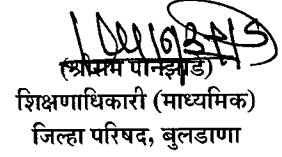 (श्रीराम पानझाडे)
शिक्षणाधिकारी (माध्यमिक)
जिल्हा परिषद, बुलडाणा